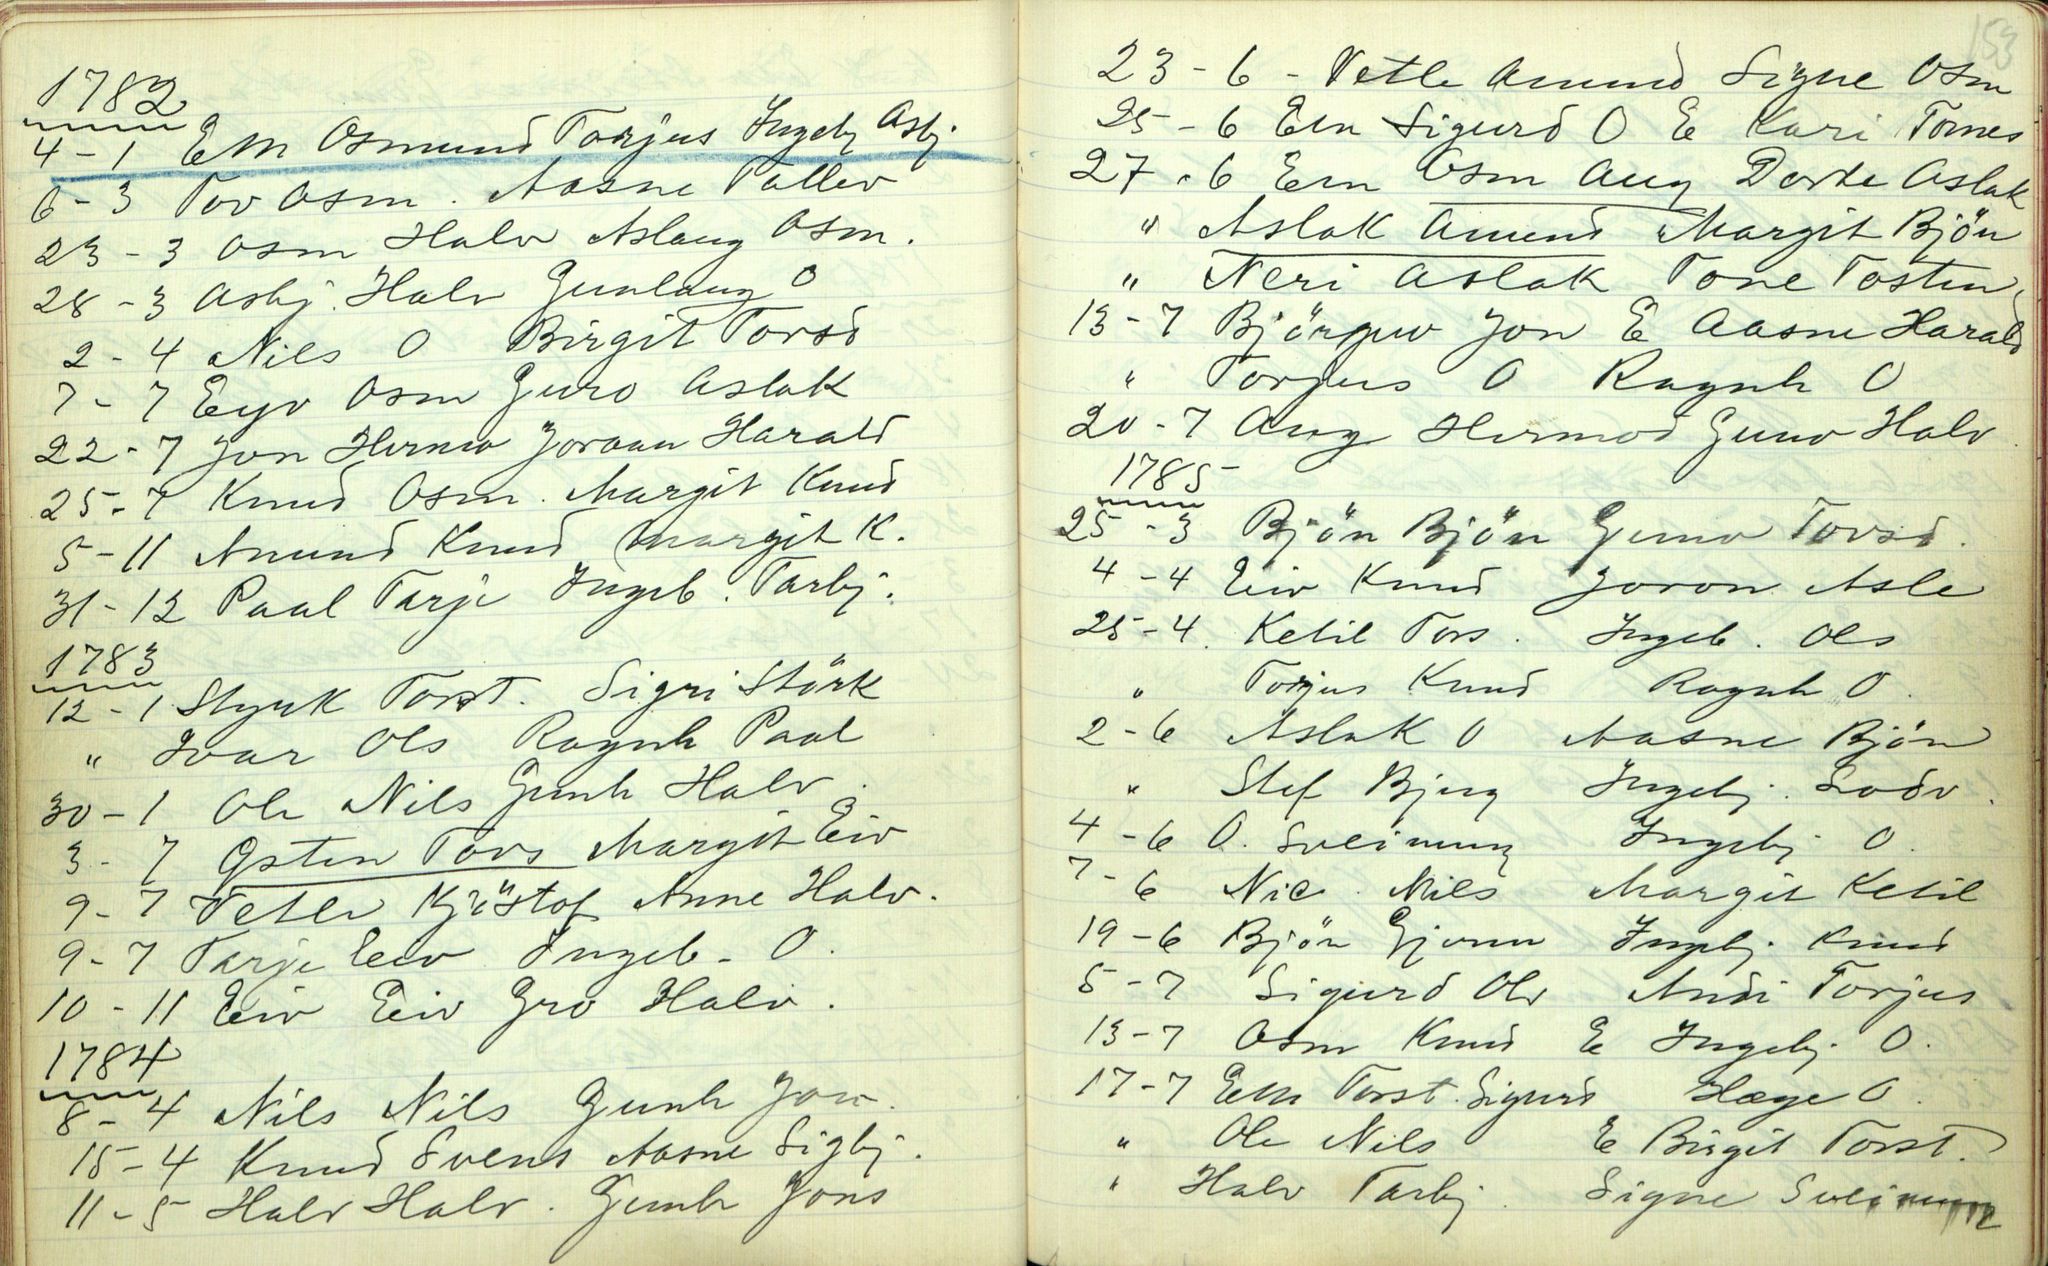 1782
4-1 Em Osmund Torjus Ingebj Asbj
6-3 Tov Osm. Aasne Tallev
23-3 Osm Halv Aslaug Osm.
28-3 Asbj. Halv Gunlaug O
2-4 Nils O Birgit Tovsd
7-7 Eyv Osm Guro Aslak
22-7 Jon Hermo Joraan Harald
25-7 Knud Osm. Margit Knud
5-11 Amund Knud Margit K.
31-12 Paal Tarje Ingeb. Tarbj.
1783
12-1 Styrk Torst. Sigri Störk
" Ivar Ols Ragnh Paal
30-1 Ole Nils Gunh Halv.
3-7 Östen Tovs Margit Eiv
9-7 Vetle Kjöstof Anne Halv.
9-7 Tarje Eiv Ingeb. O.
10-11 Eiv Eiv Gro Halv.
1784
8-4 Nils Nils Gunh Jon.
15-4 Knud Svens Aasne Sigbj.
11-5 Halv Halv. Gunh Jons
153
23-6- Vetle Amund Signe Osm
25-6 Em Sigurd O E Kari Tomes
27-6 Em Osm Aug Dorte Aslak
" Aslak Amund Margit Bjön
" Neri Aslak Tone Tosten
13-7 Björguv Jon E Aasne Harald
" Torjus O Ragnh O
20-7 Aug Hermod Gunv Halv.
1785
25-3 Bjön Bjön Gunv Tovsd.
4-4 Eiv Knud Joron Asle
25-4. Ketil Tors. Ingeb. Ols
" Torjus Knud Ragnh O.
2-6 Aslak O Aasne Bjön
" Stef Bjug Ingebj. Lodv.
4-6 O. Sveinung Ingebj O.
7-6 Nic. Nils Margit Ketil
19-6 Bjön Gjerm Ingebj. Knud
5-7 Sigurd Olv Andi Torjus
13-7 Osm Knud E Ingebj. O.
17-7 Em Torst. Sigurd Hæge O.
" Ole Nils E Birgit Torst.
" Halv Tarbj. Signe Sveinung